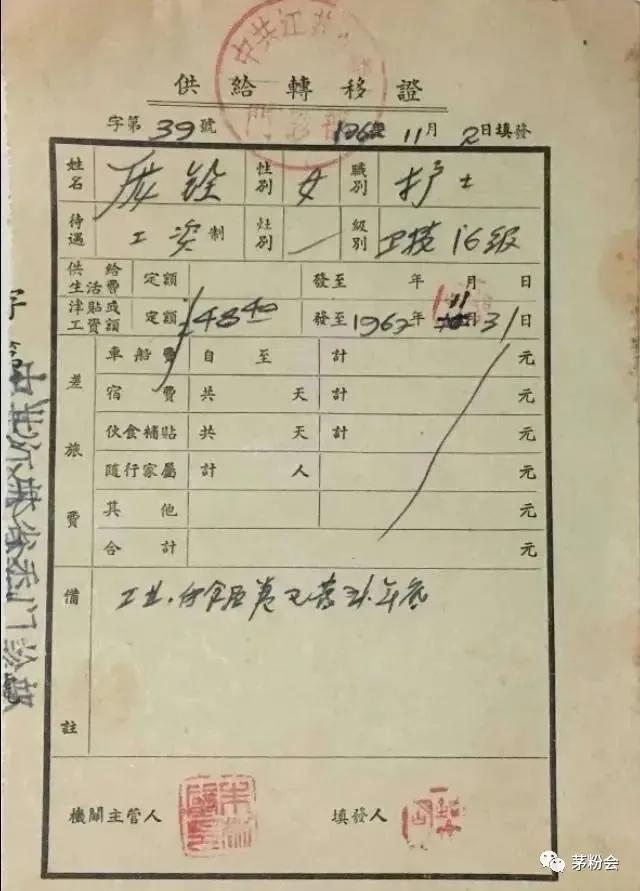 中共江苏
門診部
供給轉移證
字第39號 1962 11月2日填發
姓名 銓 性別 女 職別 护士
待遇 工资制 灶別 級別 卫技16级
供給生活費 定額 發至 年 月 日
津貼或工資額 定額 48.40 發至1962年11月31日
差旅費
車船費 自 至 計 元
宿費 共 天 計 元
伙食補貼 共 天 計 元
随行家屬 計 人 元
其他 元
合計 元
備註
年底
機關主管人 填發人
中共江苏省委门诊部
茅粉会